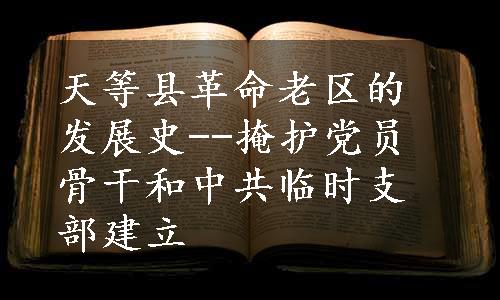 天等县革命老区的
发展史--掩护党员
骨干和中共临时支
部建立